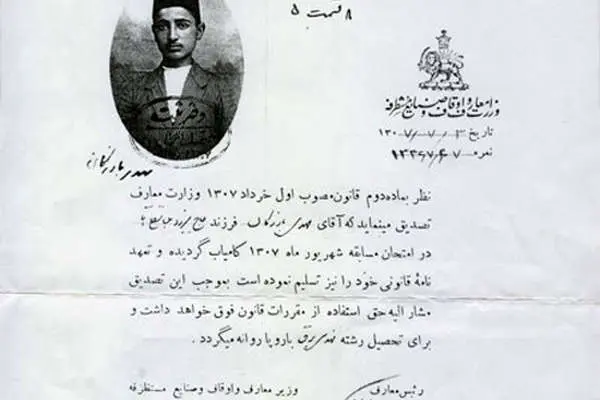 ۸ قسمت ۵
وزارت معارف و اوقاف و صنایع مستظرفه
تاریخ ۱۳۰۷/۷/۳
نمره
نظر بماده دوم قانون مصوب اول خرداد ۱۳۰۷ وزارت معارف
تصدیق مینماید که آقای مهدی بازرگان فرزند حاج
در امتحان مسابقه شهریور ماه ۱۳۰۷ کامیاب گردیده و تعهد
نامهٔ قانونی خود را نیز تسلیم نموده است بموجب این تصدیق
مشارالیه حق استفاده از مقررات قانون فوق خواهد داشت و
برای تحصیل رشته مهندسی برق باروپا روانه میگردد .
رئیس معارف
وزیر معارف و اوقاف و صنایع مستظرفه